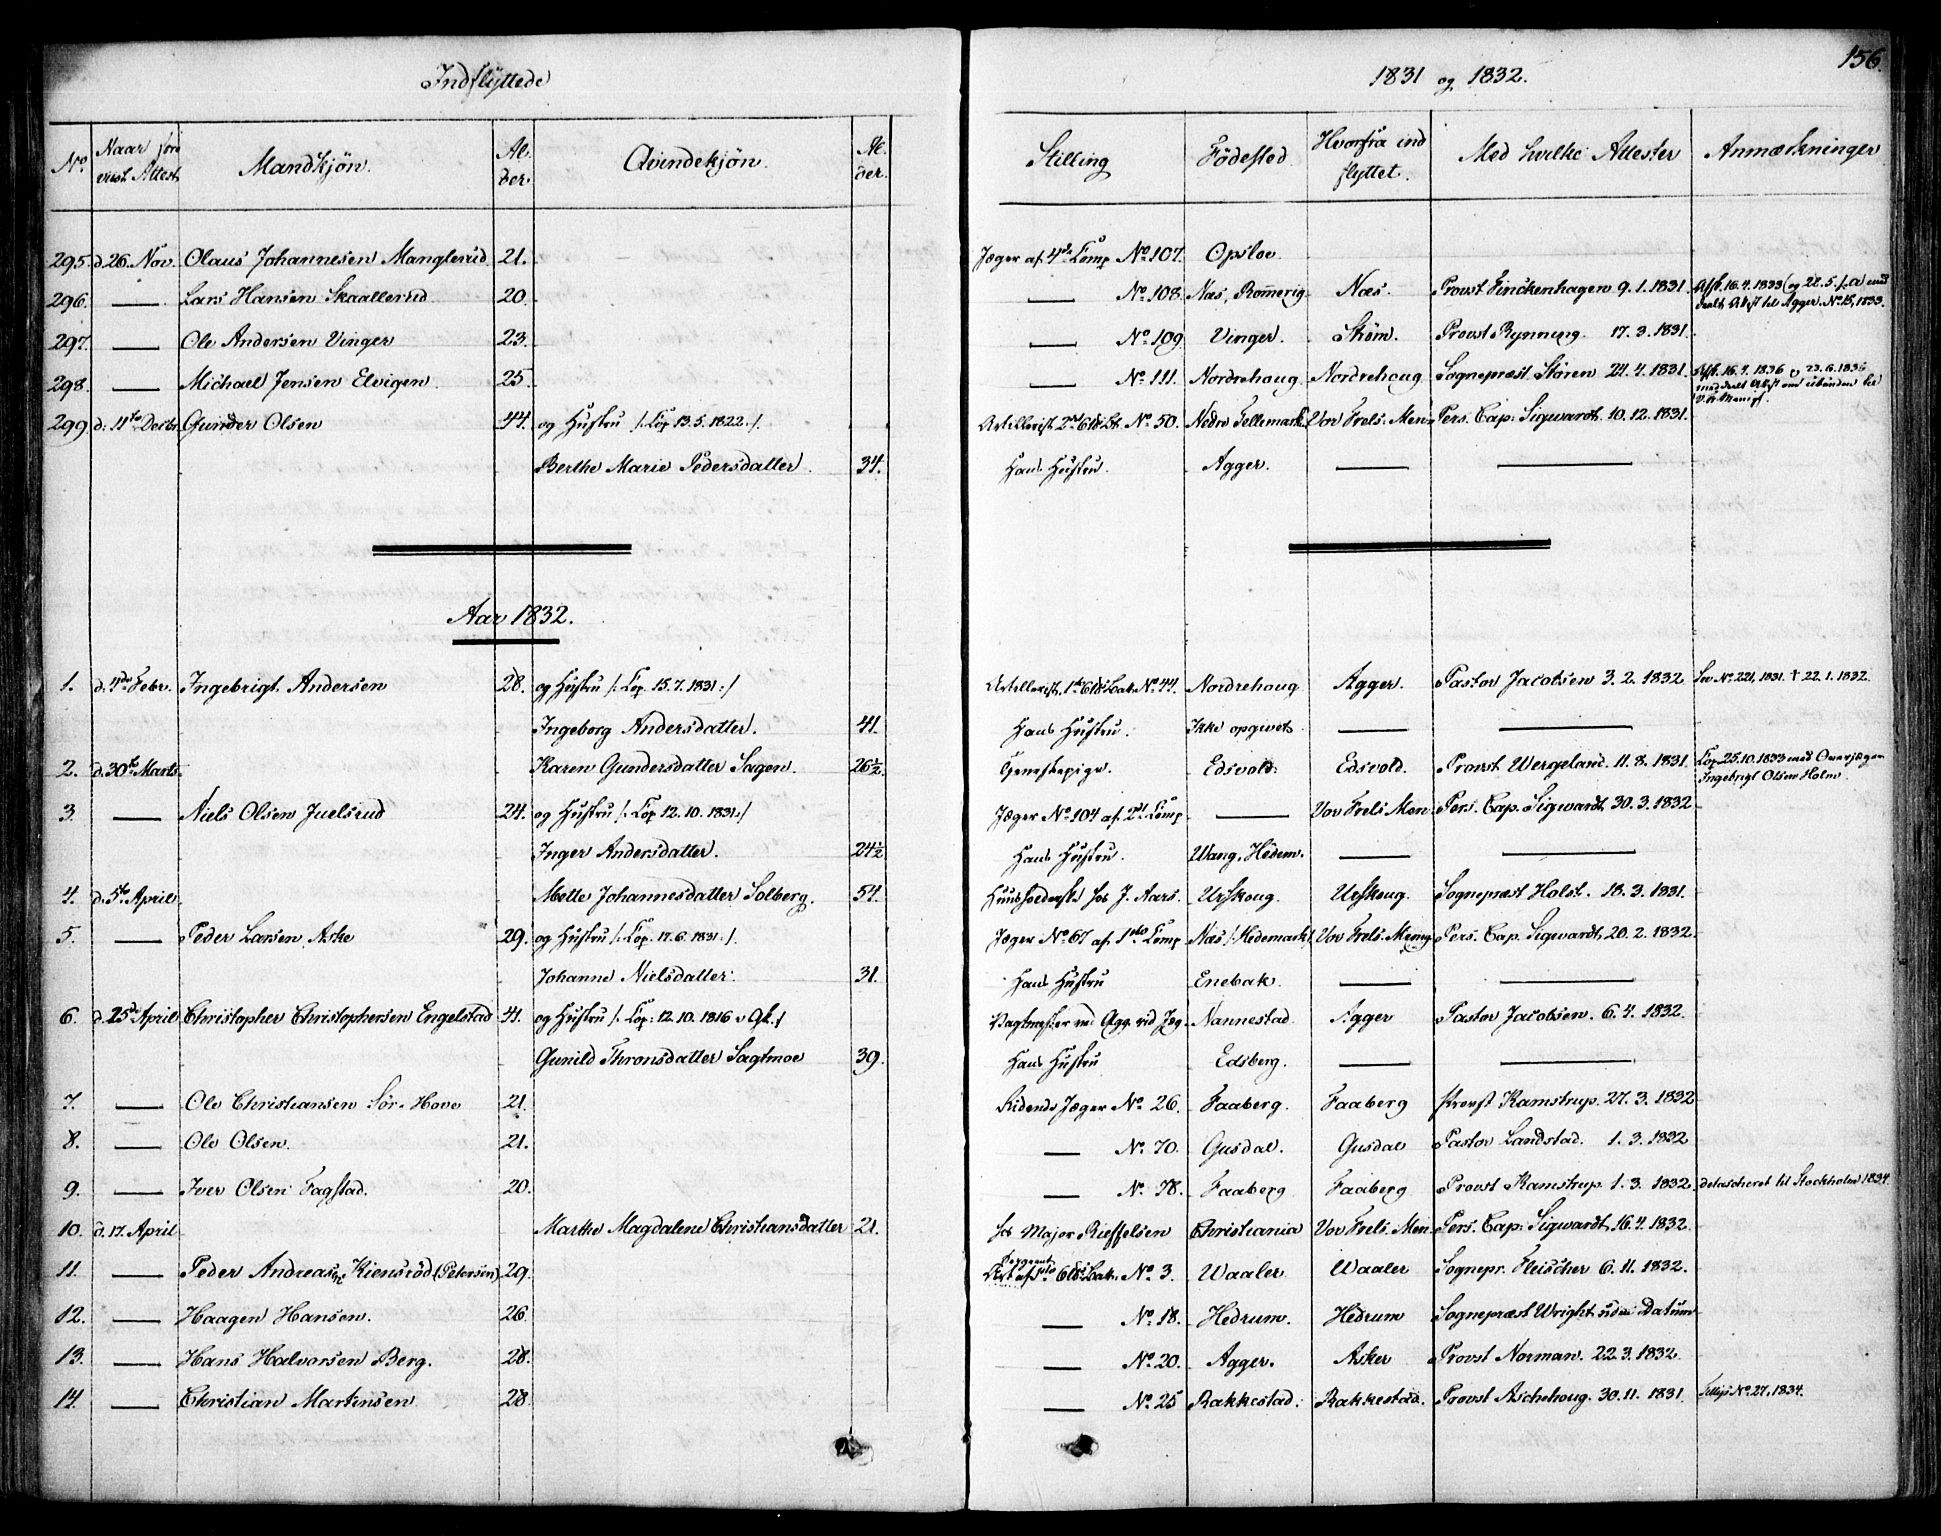 156.
Indflyttede 1831 og 1832.
No Naar fore Mandkjön. Al. Qvindekjön. Al. Stilling Födested. Hvorfra ind Med hvilke Attester Anmærkninger
vist Attest der. der. flyttet.
295. d. 26. Nov. Olaus Johannesen Manglerud 21. Jæger af 4de Comp No 107. Opsloe
296. — Lars Hansen Skaallerud 20. — No 108. Næs, Romerig. Næs. Provst Finckenhagen 9.1.1831. 16.4.1833 (og 22.5. s.a.) med
deelt Attest til Agger. No 15, 1833.
297. — Ole Andersen Vinger 23. — No 109 Vinger. Ström. Provst Rynning. 17.3.1831.
298. — Michael Jensen Elvigen. 25. — No 111. Nordrehoug Nordrehoug Sognepræst Stören 24.4.1831. 16.4.1836 23.6.1836
meddeelt Attest om ubunden
299. d. 11te Decbr. Gunder Olsen 44. og Hustru /: Cop 13.5.1822:/. Artillerist 2det 6 No 50. Nedre Tellemark. Vor Frels. Men. Pers. Cap: Sigwardt. 10.12.1831.
Berthe Marie Pedersdatter. 34. Hans Hustru. Agger. — —
Aar 1832.
1. d. 4de Febr. Ingebrigt Andersen 28. og Hustru /: Cop. 15.7.1831:/ Artillerist. 1ste 6 Bat. No 44. Nordrehoug Agger. Pastor Jacobsen 3.2.1832 See No 221, 1831. † 22.1.1832.
Ingeborg Andersdatter. 41. Hans Hustru. Ikke opgivet. — —
2. d. 30te Marts. Karen Gundersdatter Sagen. 26½. Tjenestepige. Edsvold. Edsvold. Provst Wergeland. 11.8.1831. Cop. 25.10.1833 med Overjæger
Ingebrigt Olsen Holm.
3. — Niels Olsen Juelsrud 24. og Hustru /: Cop 12.10.1831:/ Jæger No 104 af 2det Comp — Vor Frels. Men. Pers. Cap. Sigwardt. 30.3.1832
Inger Andersdatter. 24½ Hans Hustru. Wang, Hedem. — —
4. d. 5te April. Mette Johannesdatter Solberg. 54. hos J. Aars. Urskoug. Urskoug. Sognepræst Holst. 18.3.1831.
5. — Peder Larsen Aske 29. og Hustru /: Cop. 17.6.1831:/. Jæger No 67 af 1ste Comp Næs /: Hedemark/ Vor Frels. Menig. Pers. Cap. Sigwardt. 20.2.1832.
Johanne Nielsdatter. 31. Hans Hustru Enebak. — —
6. d. 25de April Christopher Christophersen Engelstad 41. og Hustru /: Cop: 12.10.1816 :/ Vagtmester ved Agg. rid. Jæg. Nannestad. Agger Pastor Jacobsen. 6.4.1832.
Gunild Thronsdatter Sagtmoe 39. Hans Hustru Edsberg. — —
7. — Ole Christiansen Sör-Hove 21. Ridende Jæger No 26. Faaberg. Faaberg Provst Kamstrup. 27.3.1832
8. — Ole Olsen. 21. — No. 70. Gusdal. Gusdal Pastor Landstad. 1.3.1832
9. — Iver Olsen Fagstad. 20. — No. 78. Faaberg Faaberg Provst Kamstrup 1.3.1832. detascheret til Stockholm 1834.
10. d. 17. April Marthe Magdalene Christiansdatter 21. hos Major Rieffelsen Christiania Vor Frels. Men. Pers. Cap: Sigwardt. 16.4.1832.
11. — Peder Andreas Kiensröd (Petersen) 29. Sergeant No. 3. Waaler Waaler Sognepr. Fleischer 6.11.1832.
12. — Haagen Hansen. 26. — No. 18. Hedrum. Hedrum Sognepræst Wright uden Datum
13. — Hans Halvorsen Berg. 28. — No. 20. Agger. Asker Provst Norman. 22.3.1832.
14. — Christian Martinsen 28. — No. 25 Rakkestad. Rakkestad. Provst Aschehoug. 30.11.1831. No. 27, 1834.